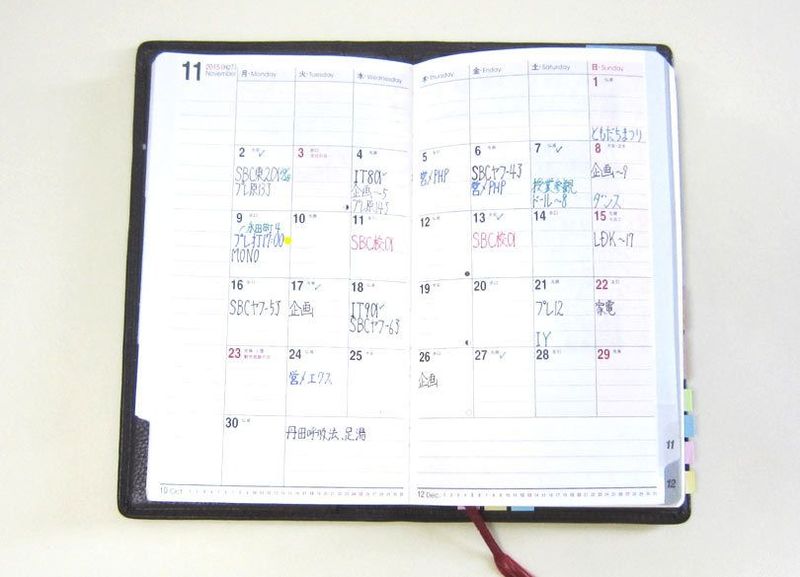 11 2015(H27) November 月·Monday 火·Tuesday 水·Wednesday 木·Thursday 金·Friday 土·Saturday 日·Sunday
1 仏滅
ともだちまつり
2
3 文化の日
4
5
6
7
8
SBC東201
プレ原133
IT801~
企画~5
プレ原143
営メPHP
SBCヤフ-43
営メPHP
授業参観
ドール~8
企画~9
ダンス
9
10
11
12
13
14
15
永田町4
プレ打17:00
MONO
SBC校01
SBC校01
LDK~17
16
17
18
19
20
21
22
SBCヤフ-53
企画
IT901~
SBCヤフ-63
プレ12
IY
家電
23
24
25
26
27
28
29
営メエクス
企画
30
丹田呼吸法、足湯
10 Oct.
12 Dec.
11
12